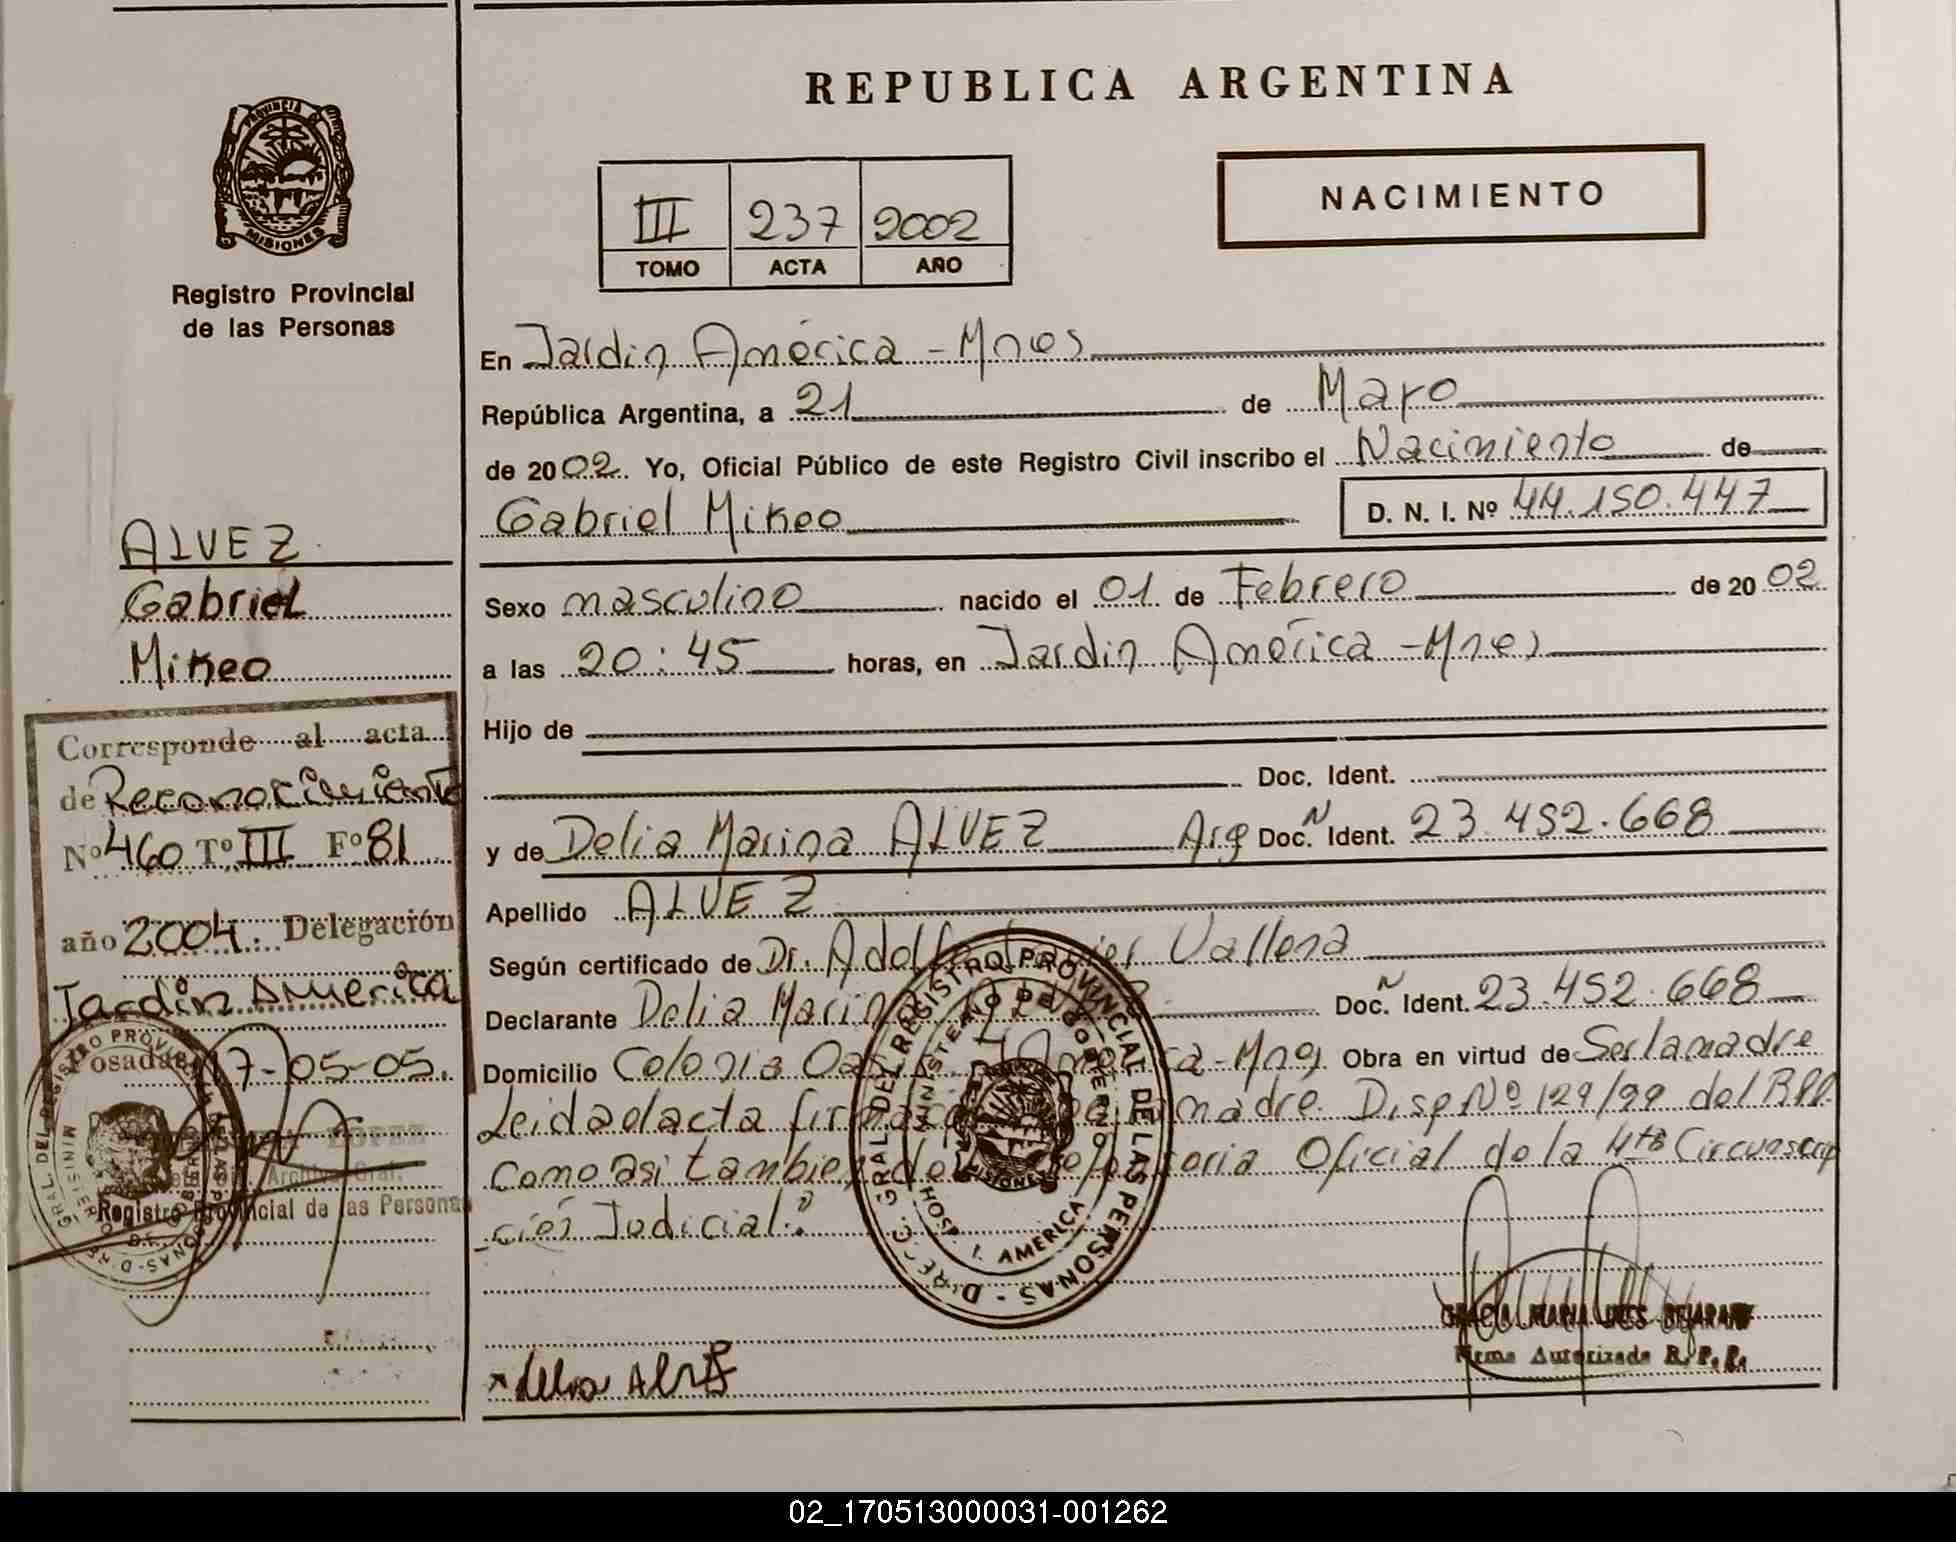 REPUBLICA ARGENTINA
PROVINCIA
MISIONES
Registro Provincial
de las Personas
III 237 2002
TOMO ACTA AÑO
NACIMIENTO
En Jardin América - Mnes
República Argentina, a 21 de Mayo
de 2002. Yo, Oficial Público de este Registro Civil inscribo el Nacimiento de
Gabriel Mikeo D. N. I. Nº 44.150.447
ALVEZ
Gabriel
Mikeo
Sexo masculino nacido el 01 de Febrero de 2002
a las 20:45 horas, en Jardin América - Mnes
Hijo de
Doc. Ident.
y de Delia Marina ALVEZ Arg Doc. N Ident. 23.452.668
Apellido ALVEZ
Según certificado de Dr. Vallena
Declarante Delia Doc. N Ident. 23.452.668
Domicilio Colonia - Mnes Obra en virtud de Ser la madre
Leida el acta madre. Disp Nº 129/99 del RPP.
Como asi tambien Oficial de la 4ta Circunscrip
ción Judicial.
Corresponde al acta
de Reconocimiento
Nº 460 Tº III Fº 81
año 2004. Delegación
Jardin America
Posadas 17-05-05.
Registro Provincial de las Personas
DIREC. GRAL. DEL REGISTRO PROVINCIAL DE LAS PERSONAS
MINISTERIO DE GOBIERNO
MISIONES
J. AMERICA
Firma Autorizada R. P. P.
02_170513000031-001262